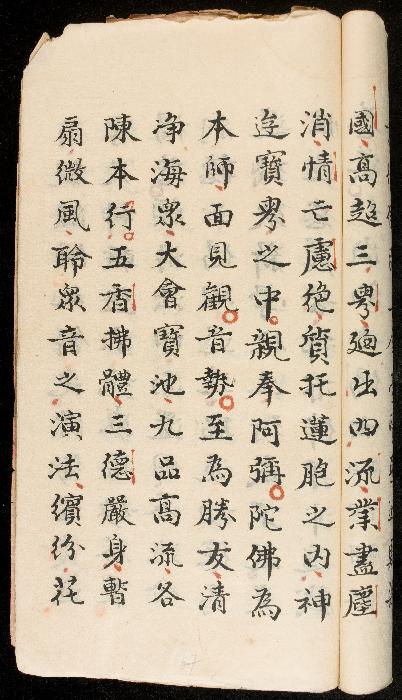 國高超三界廻出四流業盡塵
消情亡慮絶質托蓮胞之内神
逰寶界之中親奉阿彌陀佛為
本師面見觀音勢至為勝友清
净海衆大會寶池九品高流各
陳本行五香拂體三德嚴身暫
扇微風聆衆音之演法繽紛花